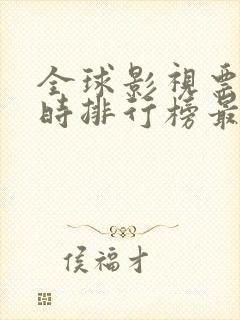 全球影視票
時排行榜最
侯福才